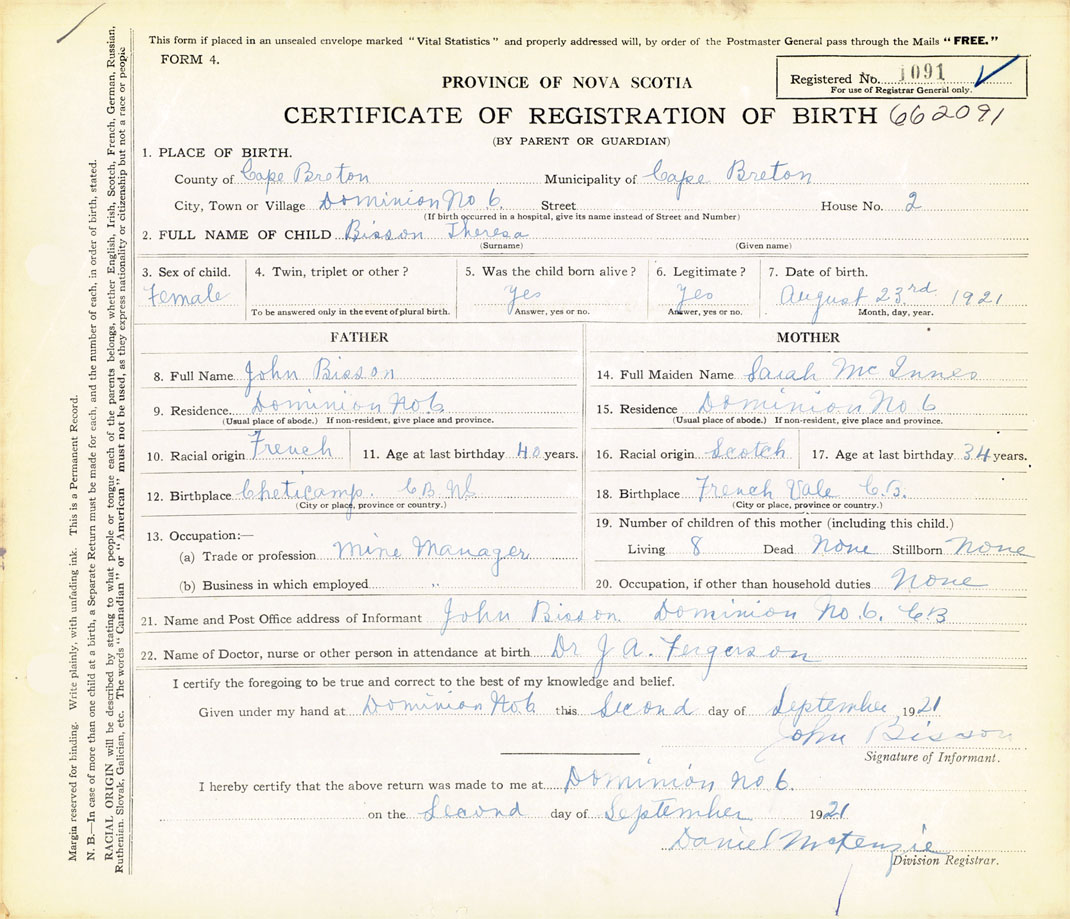 This form if placed in an unsealed envelope marked "Vital Statistics" and properly addressed will, by order of the Postmaster General pass through the Mails "FREE."
FORM 4.
Registered No. 1091
For use of Registrar General only.
PROVINCE OF NOVA SCOTIA
CERTIFICATE OF REGISTRATION OF BIRTH 662091
(BY PARENT OR GUARDIAN)
1. PLACE OF BIRTH.
County of Cape Breton Municipality of Cape Breton
City, Town or Village Dominion No 6. Street House No. 2
(If birth occurred in a hospital, give its name instead of Street and Number)
2. FULL NAME OF CHILD Bisson Theresa
(Surname) (Given name)
3. Sex of child. 4. Twin, triplet or other? 5. Was the child born alive? 6. Legitimate? 7. Date of birth.
Female Yes Yes August 23.rd 1921
To be answered only in the event of plural birth. Answer, yes or no. Answer, yes or no. Month, day, year.
FATHER MOTHER
8. Full Name John Bisson 14. Full Maiden Name Sarah Mc Innes
9. Residence Dominion No 6 15. Residence Dominion No 6
(Usual place of abode.) If non-resident, give place and province. (Usual place of abode.) If non-resident, give place and province.
10. Racial origin French 11. Age at last birthday 40 years. 16. Racial origin Scotch 17. Age at last birthday 34 years.
12. Birthplace Cheticamp. C B NS 18. Birthplace French Vale C.B.
(City or place, province or country.) (City or place, province or country.)
13. Occupation:— 19. Number of children of this mother (including this child.)
(a) Trade or profession Mine Manager Living 8 Dead None Stillborn None
(b) Business in which employed " 20. Occupation, if other than household duties None
21. Name and Post Office address of Informant John Bisson. Dominion No 6. CB
22. Name of Doctor, nurse or other person in attendance at birth Dr J A. Fergerson
I certify the foregoing to be true and correct to the best of my knowledge and belief.
Given under my hand at Dominion No 6 this Second day of September 1921
John Bisson
Signature of Informant.
I hereby certify that the above return was made to me at Dominion No 6.
on the Second day of September 1921.
Daniel McKenzie
Division Registrar.
Margin reserved for binding. Write plainly, with unfading ink. This is a Permanent Record.
N. B.—In case of more than one child at a birth, a Separate Return must be made for each, and the number of each, in order of birth, stated.
RACIAL ORIGIN will be described by stating to what people or tongue each of the parents belongs, whether English, Irish, Scotch, French, German, Russian,
Ruthenian, Slovak, Galician, etc. The words "Canadian" or "American" must not be used, as they express nationality or citizenship but not a race or people